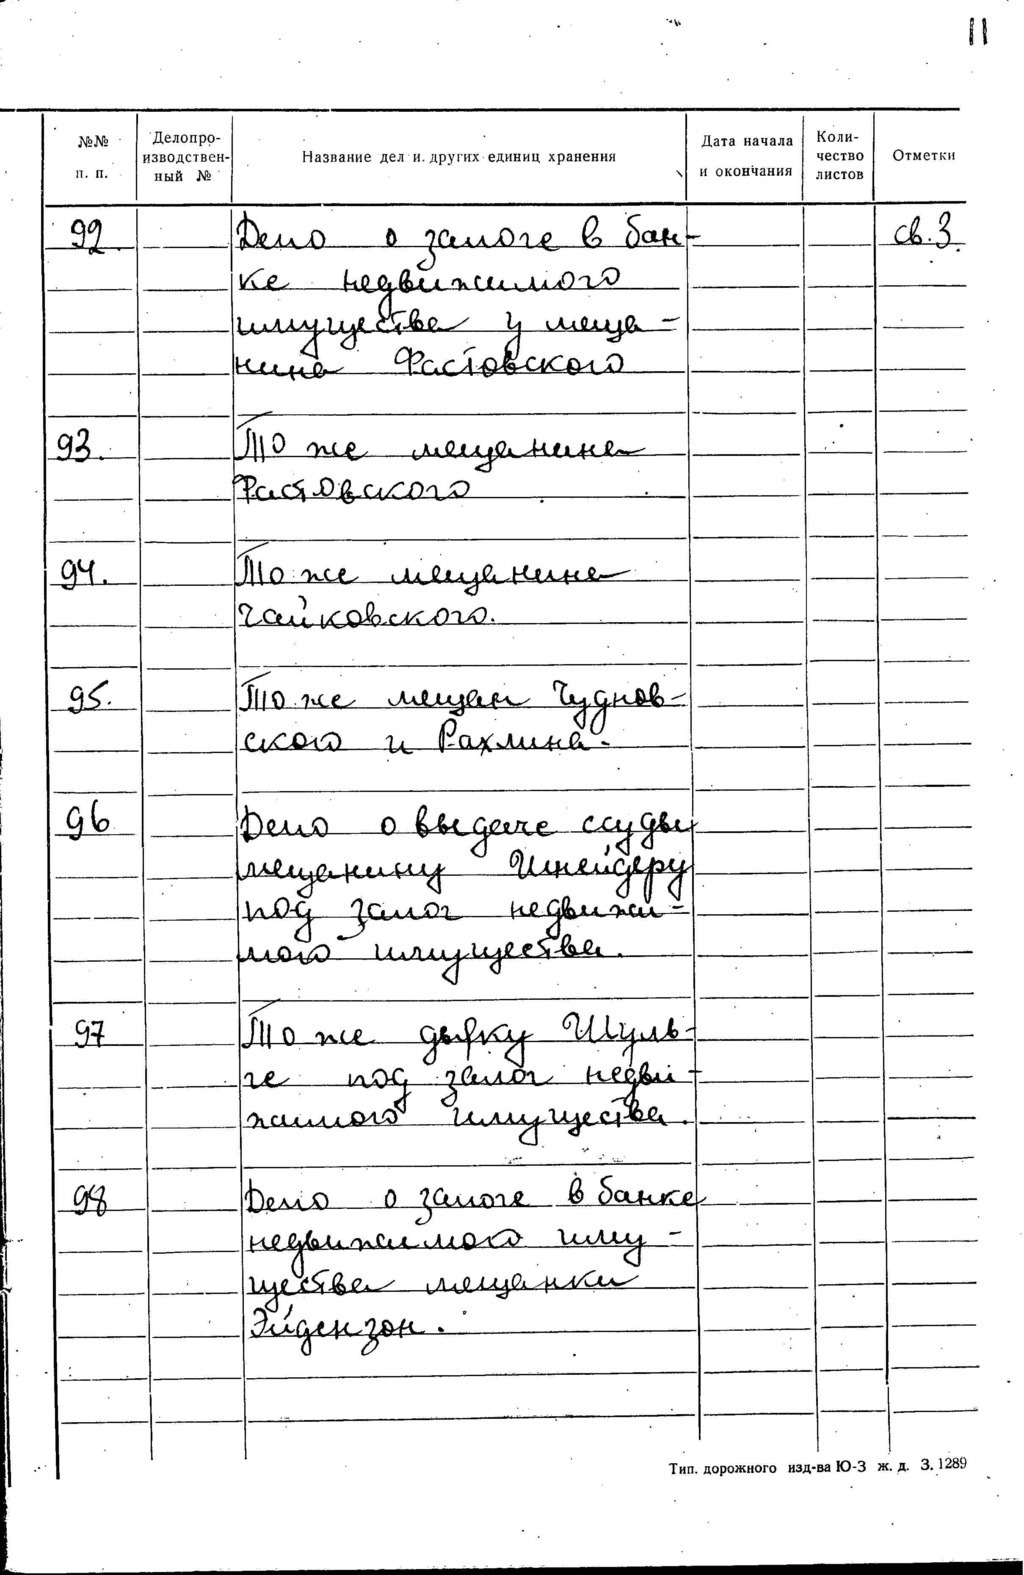 11
№№ п. п.
Делопро-
изводствен-
ный №
Название дел и других единиц хранения
Дата начала
и окончания
Коли-
чество
листов
Отметки
92. Дело о залоге в бан- св.3.
ке недвижимого
имущества у меща-
нина Фастовского
93. То же мещанина
Фастовского
94. То же мещанина
Чайковского.
95. То же мещан Чуднов-
ского и Рахлина.
96 Дело о выдаче ссуды
мещанину Шнейдеру
под залог недвижи-
мого имущества.
97 То же дьяку Шуль-
ге под залог недви-
жимого имущества.
98 Дело о залоге в банке
недвижимого иму-
щества мещанки
Эйдензон.
Тип. дорожного изд-ва Ю-З ж. д. З. 1289